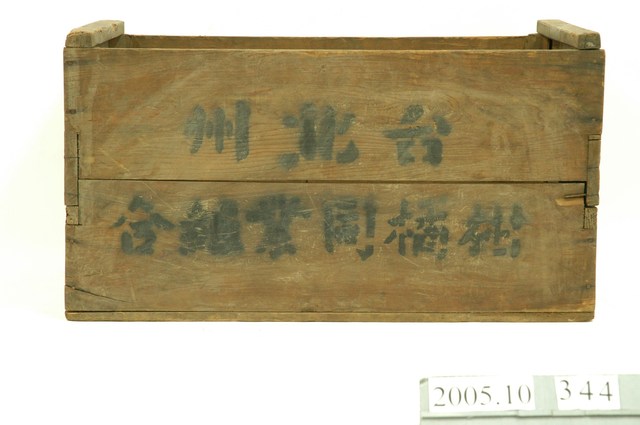 台北州
柑橘同業組合
2005.10 344